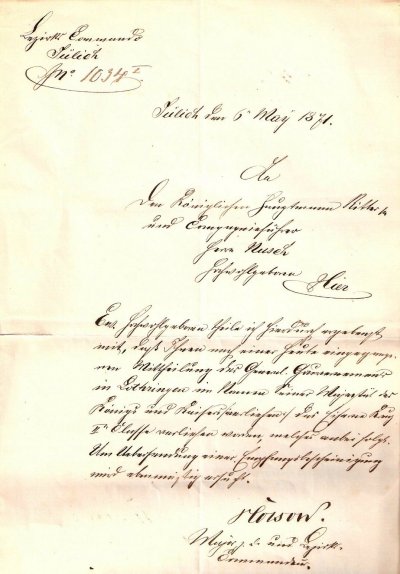 Bezirks Commando
Jülich
No 1034 I
Jülich den 6 May 1871.
An
Den Königlichen Hauptmann Ritter
und Compagnieführer
Herrn
Hochwohlgeboren
Hier
Ew. Hochwohlgeboren theile ich hierdurch ergebenst
mit, daß Ihnen nach einer heute eingegange-
nen Mittheilung des General Gouvernements
in Lothringen im Namen Seiner Majestät des
Königs und Kaisers das Eiserne Kreuz
II Classe verliehen worden, welches anbei folgt.
Um Uebersendung einer Empfangsbescheinigung
wird ersucht.
Major z. D. und Bezirks-
Commandeur.